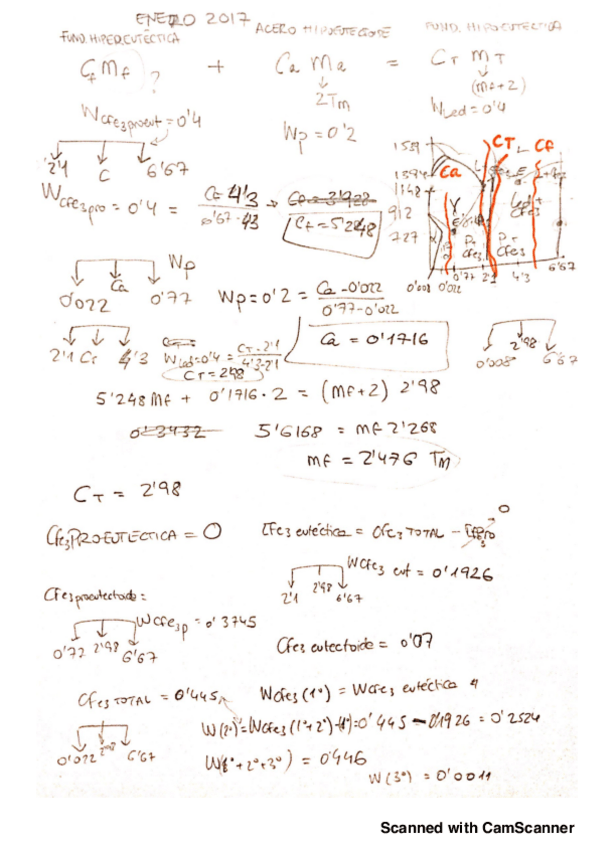 ENERO 2017
FUND. HIPEREUTÉCTICA
ACERO HIPOEUTECTOIDE
FUND. HIPOEUTÉCTICA
Cf Mf ? + Ca Ma = CT MT
2Tm
(Mf+2)
WCfe3proeut = 0'4
Wp = 0'2
WLed = 0'4
2'1 C 6'67
WCfe3pro = 0'4 = Cf 4'3 / 6'67-4'3 → Cf = 3'922
Cf = 5'248
1539
1394
1148
912
727
Ca CT Cf
L
γ
P+ Cfe3
P+ Cfe3
0'008 0'022 0'77 2'1 4'3 6'67
Wp
0'022 Ca 0'77
Wp = 0'2 = Ca - 0'022 / 0'77 - 0'022
Ca = 0'1716
2'1 CT 4'3
WLed = 0'4 = CT - 2'1 / 4'3 - 2'1
CT = 2'98
0'008 2'98 6'67
5'248 Mf + 0'1716 · 2 = (Mf+2) 2'98
0'3432
5'6168 = Mf 2'268
Mf = 2'476 TM
CT = 2'98
Cfe3 PROEUTÉCTICA = 0
Cfe3 eutéctica = Cfe3 TOTAL - Cfe3pro 0
2'1 2'98 6'67
WCfe3 eut = 0'1926
Cfe3 proeutectoide =
0'72 2'98 6'67
WCfe3p = 0'3745
Cfe3 eutectoide = 0'07
Cfe3 TOTAL = 0'445
WCfe3 (1º) = WCfe3 eutéctica
0'022 2'98 6'67
W(2º) = WCfe3 (1º+2º)-(1º) = 0'445 - 0'1926 = 0'2524
W(1º+2º+3º) = 0'446
W(3º) = 0'0011
Scanned with CamScanner